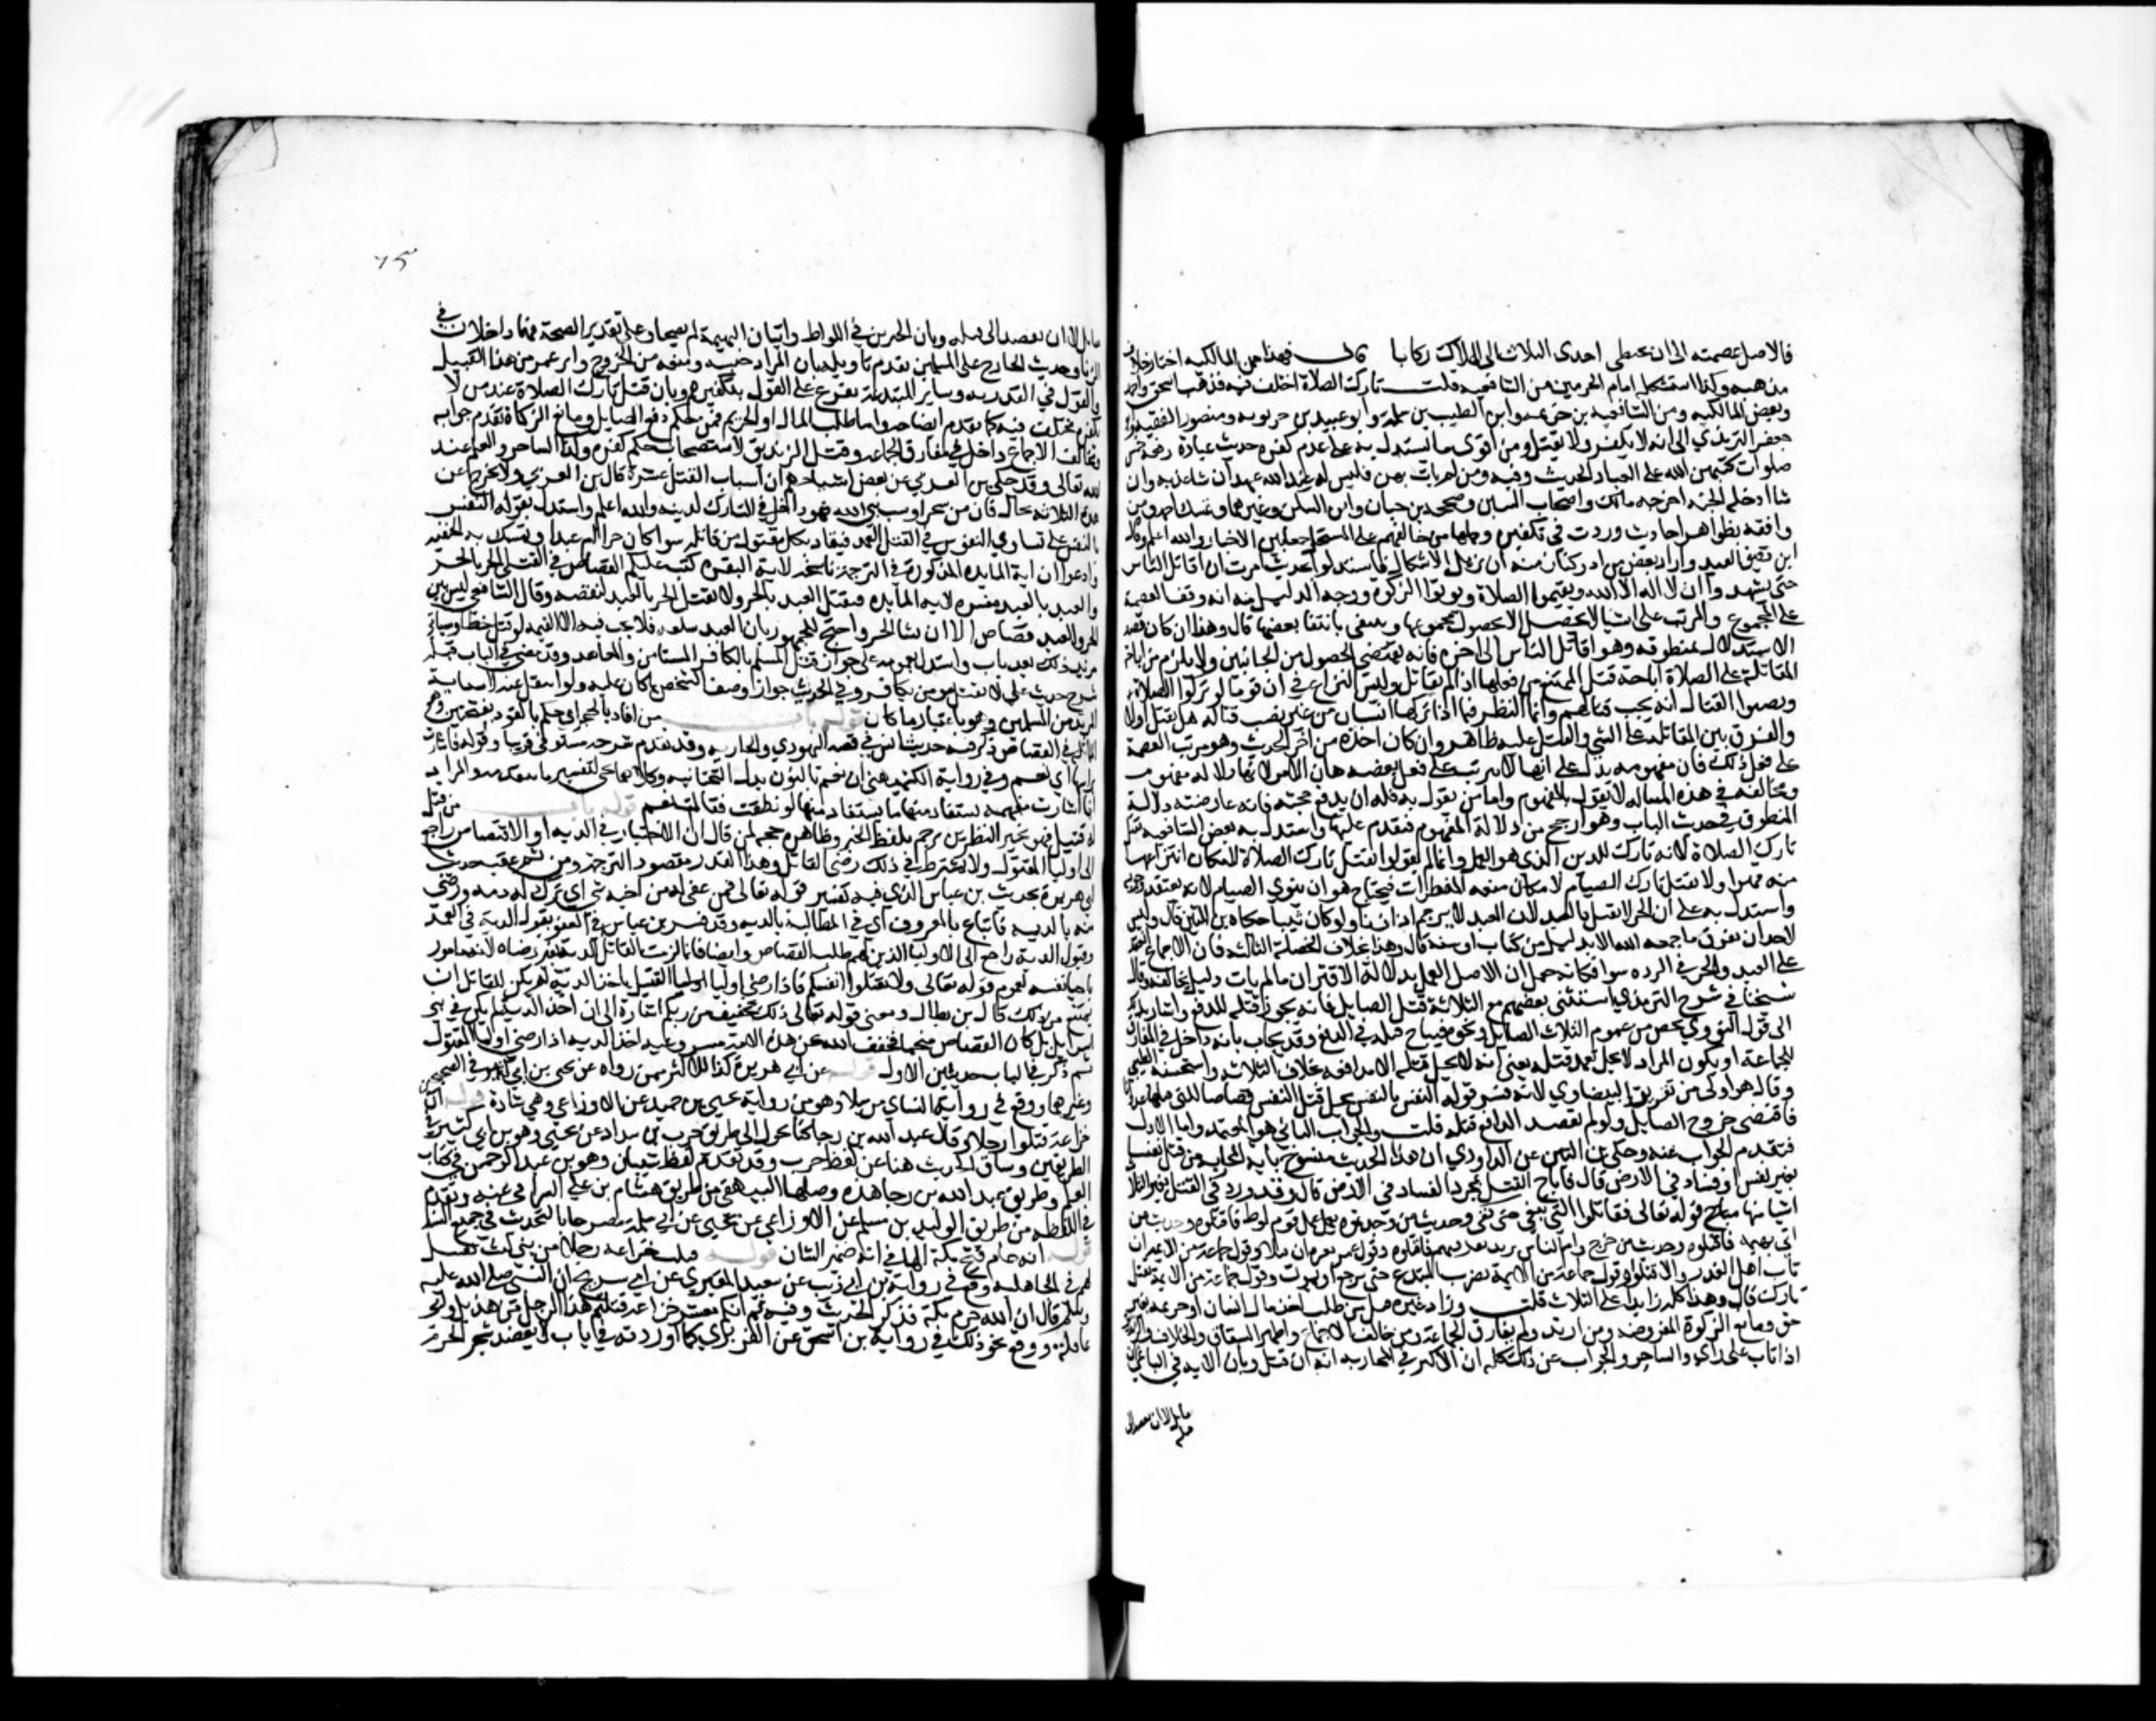 فالاصل عصمته الى ان يخطي احدى الثلاث الى الهلاك ركابا قال فهذا من المالكيه اختار خلاف
مذهبه وكذا استشكله امام الحرمين من الشافعيه قلت تارك الصلاة اختلف فيه فذهب احمد واسحق
وبعض المالكيه ومن الشافعيه بن خزيمه وابو الطيب بن سلمة وابو عبيد بن حربويه ومنصور الفقيه وابو
جعفر الترمذي الى انه لا يكفر ولا يقتل ومن اقوى ما يستدل به على عدم كفره حديث عبادة رفعه خمس
صلوات كتبهن الله على العباد الحديث وفيه ومن لم يات بهن فليس له عند الله عهد ان شا عذبه وان
شا ادخله الجنة اخرجه مالك واصحاب السنن وصححه بن حبان وابن السكن وغيرهما وتمسك احمد ومن
وافقه بظواهر احاديث وردت في تكفيره وحملها من خالفهم على المستحل جمعا بين الاخبار والله اعلم وقال
ابن دقيق العيد واراد بعض من ادركنا زمنه ان يزيل الاشكال فاستدل بحديث امرت ان اقاتل الناس
حتى يشهدوا ان لا اله الا الله ويقيموا الصلاة ويوتوا الزكوة ووجه الدليل منه انه وقف العصمة
على المجموع والمرتب على اشيا لا يحصل الا بحصول مجموعها وينتفي بانتفا بعضها قال وهذا ان كان قصد
الاستدلال بمنطوقه وهو اقاتل الناس الى اخره فانه يقتضي الحصول من الجانبين ولا يلزم من اباحة
المقاتلة على الصلاة اباحة قتل الممتنع من فعلها اذا لم يقاتل وليس النزاع في ان قوما لو تركوا الصلاة
ونصبوا القتال انه يجب قتالهم وانما النظر فيما اذا تركها انسان من غير نصب قتال هل يقتل او لا
والفرق بين المقاتلة على الشي والقتل عليه ظاهر وان كان اخذه من اخر الحديث وهو ترتب العصمة
على فعل ذلك فان مفهومه يدل على انها لا تترتب على فعل بعضه هان الامر لانها دلالة مفهوم
ومخالفه في هذه المساله لا يقول بالمفهوم واما من يقول به فله ان يدفع حجته فانه عارضته دلالة
المنطوق في حديث الباب وهو ارجح من دلالة المفهوم فيقدم عليها واستدل به بعض الشافعيه
تارك الصلاة لانه تارك للدين الذي هو العمل وانما لم يقولوا بقتل تارك الزكاة لامكان انتزاعها
منه قهرا ولا يقتل تارك الصيام لامكان منعه المفطرات فيحتاج هو ان ينوي الصيام لانه يعتقد وجوبه
واستدل به على ان الحر لا يقتل بالعبد لان العبد لا يرجم اذا زنا ولو كان ثيبا حكاه بن التين قال وليس
لاحد ان يفرق ما جمعه الله الا بدليل من كتاب او سنة قال وهذا بخلاف الخصلة الثالثه فان الاجماع انعقد
على العبد والحر في الرده سوا فكانه جعل ان الاصل العمل بدلالة الاقتران ما لم يات دليل يخالفه وقال
شيخنا في شرح الترمذي استثنى بعضهم مع الثلاثة قتل الصايل فانه يجوز قتله للدفع واشار بذلك
الى قول النووي يخص من عموم الثلاث الصايل ونحوه فيباح قتله في الدفع وقد يجاب بانه داخل في المفارق
للجماعة او يكون المراد لا يحل تعمد قتله بمعنى انه لا يحل قتله الا مدافعه بخلاف الثلاث واستحسنه الطيبي
وقال هو اولى من تقرير البيضاوي لانه فسر قوله النفس بالنفس يحل قتل النفس قصاصا للنفس التي قتلها عدوانا
فاقتضى خروج الصايل ولو لم يقصد الدافع قتله قلت والجواب الثاني هو المعتمد واما الاول
فتقدم الجواب عنه وحكى بن التين عن الداودي ان هذا الحديث منسوخ باية المحاربه من قتل نفسا
بغير نفس او فساد في الارض قال فاباح القتل بمجرد الفساد في الارض قال وقد ورد في القتل بغير الثلاث
اشيا منها قوله تعالى فقاتلوا التي تبغي حتى تفي وحديث من وجدتموه يعمل عمل قوم لوط فاقتلوه وحديث من
اتى بهيمه فاقتلوه وحديث من خرج وامر الناس جميع يريد تفرقهم فاقتلوه وقول عمر تغرة ان يقتلا وقول جماعة من الايمة ان
تاب اهل القدر والا قتلوا وقول جماعة من الايمة يضرب المبتدع حتى يرجع او يموت وقول جماعة من الايمة يقتل
تارك الصلاة قال وهذا كله زايد على الثلاث قلت وزاد غيره قتل من طلب اخذ مال انسان او حريمه بغير
حق ومانع الزكوة المفروضه ومن ارتد ولم يفارق الجماعة ومن خالف الاجماع واظهر الشقاق والخلاف والزنديق
اذا تاب على راي والساحر والجواب عن ذلك كله ان الاكثر في المحاربه انه ان قتل قتل وبان الايه في الباغي ان
يقاتل لا ان يقصد الى
قتله
٧٥
يقاتل لا ان يقصد الى قتله وبان الخبرين في اللواط واتيان البهيمة لم يصحا وعلى تقدير الصحة فهما داخلان في
الزنا وحديث الخارج على المسلمين تقدم تاويله بان المراد حبسه ومنعه من الخروج واثر عمر من هذا القبيل
والقول في القدريه وساير المبتدعة مفرع على القول بتكفيرهم وبان قتل تارك الصلاة عند من لا
يكفره مختلف فيه كما تقدم ايضاحه واما طلب المال او الحريم فمن حكم دفع الصايل ومانع الزكاة تقدم جوابه
ومخالف الاجماع داخل في مفارق الجماعه وقتل الزنديق لاستصحاب حكم كفره وكذا الساحر والعلم عند
الله تعالى وقد حكى بن العربي عن بعض اشياخهم ان اسباب القتل عشرة قال بن العربي ولا يخرج عن
هذه الثلاثه بحال فان من سحر او سب نبي الله فهو داخل في التارك لدينه والله اعلم واستدل بقوله النفس
بالنفس على تساوي النفوس في القتل العمد فيقاد بكل مقتول من قاتله سوا كان حرا ام عبدا وتمسك به الحنفيه
وادعوا ان اية المايده المذكورة في الترجمة ناسخه لاية البقره كتب عليكم القصاص في القتلى الحر بالحر
والعبد بالعبد ومنهم من قال اية المايده
الحر والعبد قصاص الا ان يشا الحر واحتج للجمهور بان العبد سلعه فلا يجب فيه الا القيمه لو قتل خطا وسياتي
مزيد لذلك بعد باب واستدل بعمومه على جواز قتل المسلم بالكافر المستامن والمعاهد وقد مضى في الباب قبله
شرح حديث علي لا يقتل مومن بكافر وفي الحديث جواز وصف الشخص بما كان عليه ولو انتقل عنه لاستثنايه
المرتد من المسلمين وهو باعتبار ما كان قوله باب من اقاد بالحجر اي حكم بالقود بفتحتين وهو
المماثلة في القصاص ذكر فيه حديث انس في قصة اليهودي والجاريه وقد تقدم شرحه مستوفى قريبا وقوله فاشارت
براسها اي نعم وفي رواية الكشميهني ان نعم بالنون بدل التحتانيه وكلاهما يجي لتفسير ما تقدمه والمراد
انها اشارت اشارة مفهمه يستفاد منها ما يستفاد منها لو نطقت فقالت نعم قوله باب من قتل
له قتيل فهو بخير النظرين ترجم بلفظ الخبر وظاهره حجه لمن قال ان الاختيار في الديه او الاقتصاص راجع
الى اوليا المقتول ولا يشترط في ذلك رضى القاتل وهذا القدر مقصود الترجمة ومن ثم عقب حديث
ابي هريرة بحديث بن عباس الذي فيه تفسير قوله تعالى فمن عفي له من اخيه شي اي ترك له دمه ورضي
منه بالديه فاتباع بالمعروف اي في المطالبة بالديه وقد فسر بن عباس العفو بقبول الدية في العمد
وقبول الدية راجع الى الاوليا الذين لهم طلب القصاص وايضا فانما لزمت القاتل الدية بغير رضاه لانه مامور
باحيا نفسه لعموم قوله تعالى ولا تقتلوا انفسكم فاذا رضي اوليا المقتول باخذ الدية له لم يكن للقاتل ان
يمتنع من ذلك قال بن بطال ومعنى قوله تعالى ذلك تخفيف من ربكم اشارة الى ان اخذ الدية لم يكن في بني
اسرايل بل كان القصاص متحتما فخفف الله عن هذه الامة بمشروعية اخذ الديه اذا رضي اوليا المقتول
ثم ذكر في الباب حديثين الاول قوله عن ابي هريرة كذا للاكثر ممن رواه عن يحيى بن ابي كثير في الصحيحين
وغيرهما ووقع في رواية النساي مرسلا وهو من رواية يحيى بن حميد عن الاوزاعي وهي شاذة قوله ان
خزاعة قتلوا رجلا وقال عبد الله بن رجا كذا تحول الى طريق حرب بن شداد عن يحيى وهو بن ابي كثير في
الطريقين وساق الحديث هنا عن لفظ حرب وقد تقدم لفظ شيبان وهو بن عبد الرحمن في كتاب
العلم وطريق عبد الله بن رجا هذه وصلها البيهقي من طريق هشام بن علي السيرافي عنه وتقدم
في اللقطه من طريق الوليد بن مسلم عن الاوزاعي عن يحيى عن ابي سلمة مصرحا بالتحديث في جميع السند
قوله انه عام فتح مكة الها في انه ضمير الشان قوله قتلت خزاعه رجلا من بني ليث بقتيل
لهم في الجاهليه وقع في رواية بن ابي ذيب عن سعيد المقبري عن ابي شريح ان النبي صلى الله عليه
وسلم قال ان الله حرم مكة فذكر الحديث وفيه ثم انكم معشر خزاعة قتلتم هذا الرجل من هذيل واني
عاقله ووقع نحو ذلك في رواية بن اسحق عن المقبري كما اوردته في باب لا يعضد شجر الحرم